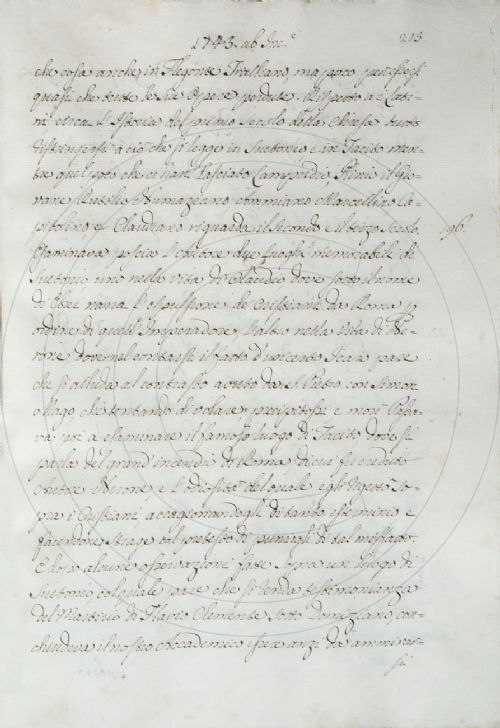 1743. ab Inc.e
213.
che cosa anche in Flegonte Tralliano, ma poco
quasi che tutte le sue Opere perdute. Rispetto a' Lati-
ni circa l'Istoria del primo Secolo della Chiesa tutto
ristringersi a ciò che si legge in Suetonio e in Tacito men-
tre quel poco che ci han lasciato Lampridio, Plinio il Gio-
vane Rutilio Numaziano Ammiano Marcellino Ca-
pitolino e Claudiano riguarda il secondo e il terzo Secolo.
196.
Esaminava poscia l'Autore due luoghi memorabili di
Suetonio uno nella vita di Claudio dove sotto il nome
di narra l'espulsione de' Cristiani da Roma p
ordine di quest'Imperadore, l'altro nella vita di Ne-
rone dove nel contarsi il fatto d'un certo Icaro pare
che si alluda al contrasto avuto da S. Pietro con Simon
Mago che tentando di volare precipitossi e morì. Passa-
va poi à esaminare il famoso luogo di Tacito dove si
parla del grand'incendio di Roma di cui fu creduto
Autore Nerone, e l'odiosità del quale egli rigettò so-
pra i Cristiani accagionandogli di tanto esterminio e
facendone strage col pretesto di punirgli di tal misfatto.
E dopo alcune osservazioni fatte sopra un luogo di
Suetonio col quale pare che si renda testimonianza
del Martirio di Flavio Clemente sotto Domiziano, con-
chiudeva il nostro Accademico esser anzi da ammirar-
si